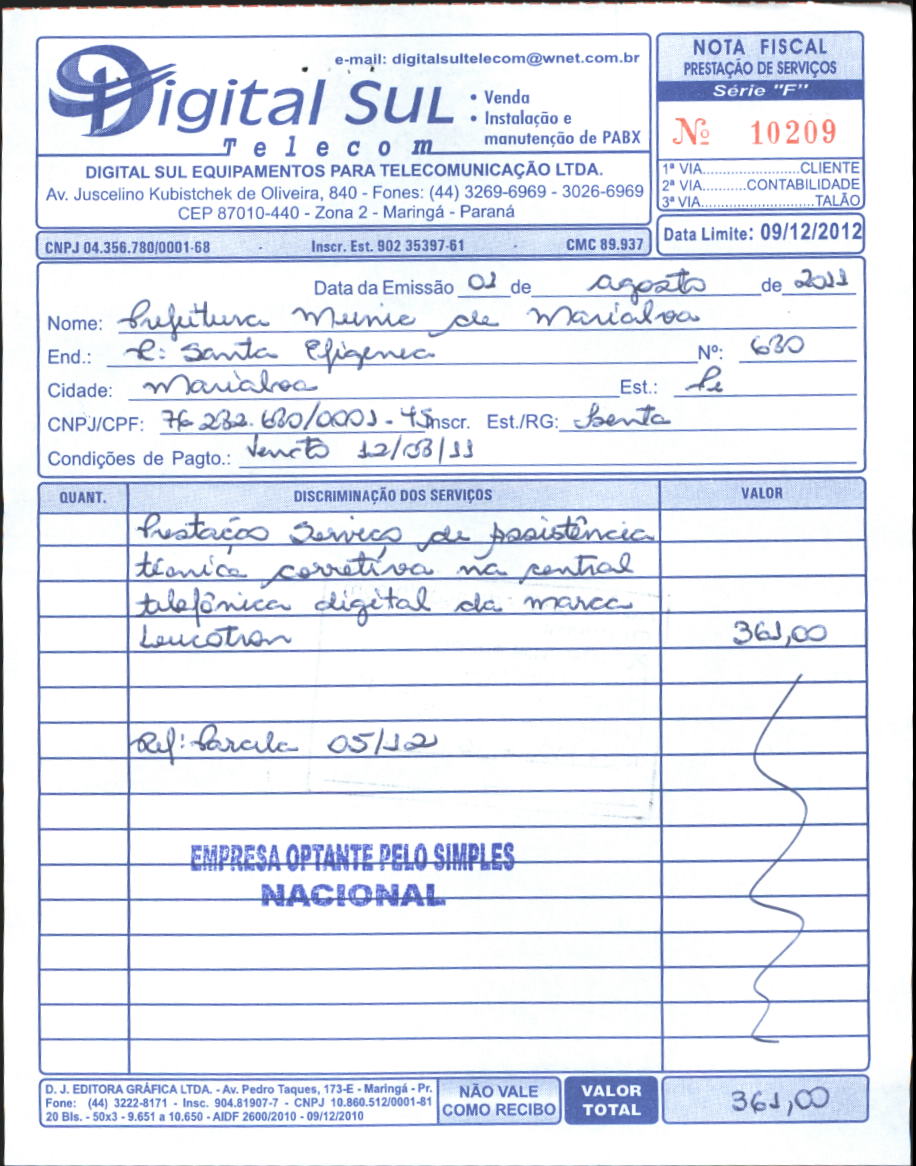 e-mail: digitalsultelecom@wnet.com.br
Digital Sul
Telecom
• Venda
• Instalação e
manutenção de PABX
DIGITAL SUL EQUIPAMENTOS PARA TELECOMUNICAÇÃO LTDA.
Av. Juscelino Kubistchek de Oliveira, 840 - Fones: (44) 3269-6969 - 3026-6969
CEP 87010-440 - Zona 2 - Maringá - Paraná
CNPJ 04.356.780/0001-68 - Inscr. Est. 902 35397-61 - CMC 89.937
NOTA FISCAL
PRESTAÇÃO DE SERVIÇOS
Série "F"
Nº 10209
1ª VIA......................CLIENTE
2ª VIA..........CONTABILIDADE
3ª VIA.........................TALÃO
Data Limite: 09/12/2012
Data da Emissão 01 de agosto de 2011
Nome: Prefeitura Munic de Marialva
End.: R: Santa Efigenea Nº: 680
Cidade: Marialva Est.: Pr
CNPJ/CPF: 76.282.680/0001-45 Inscr. Est./RG: Isenta
Condições de Pagto.: Vencto 12/08/11
QUANT. DISCRIMINAÇÃO DOS SERVIÇOS VALOR
Prestação Serviço de Assistência
técnica corretiva na central
telefônica digital da marca
Leucotron 361,00
Ref: Parcela 05/12
EMPRESA OPTANTE PELO SIMPLES
NACIONAL
D. J. EDITORA GRÁFICA LTDA. - Av. Pedro Taques, 173-E - Maringá - Pr.
Fone: (44) 3222-8171 - Insc. 904.81907-7 - CNPJ 10.860.512/0001-81
20 Bls. - 50x3 - 9.651 a 10.650 - AIDF 2600/2010 - 09/12/2010
NÃO VALE
COMO RECIBO
VALOR
TOTAL
361,00